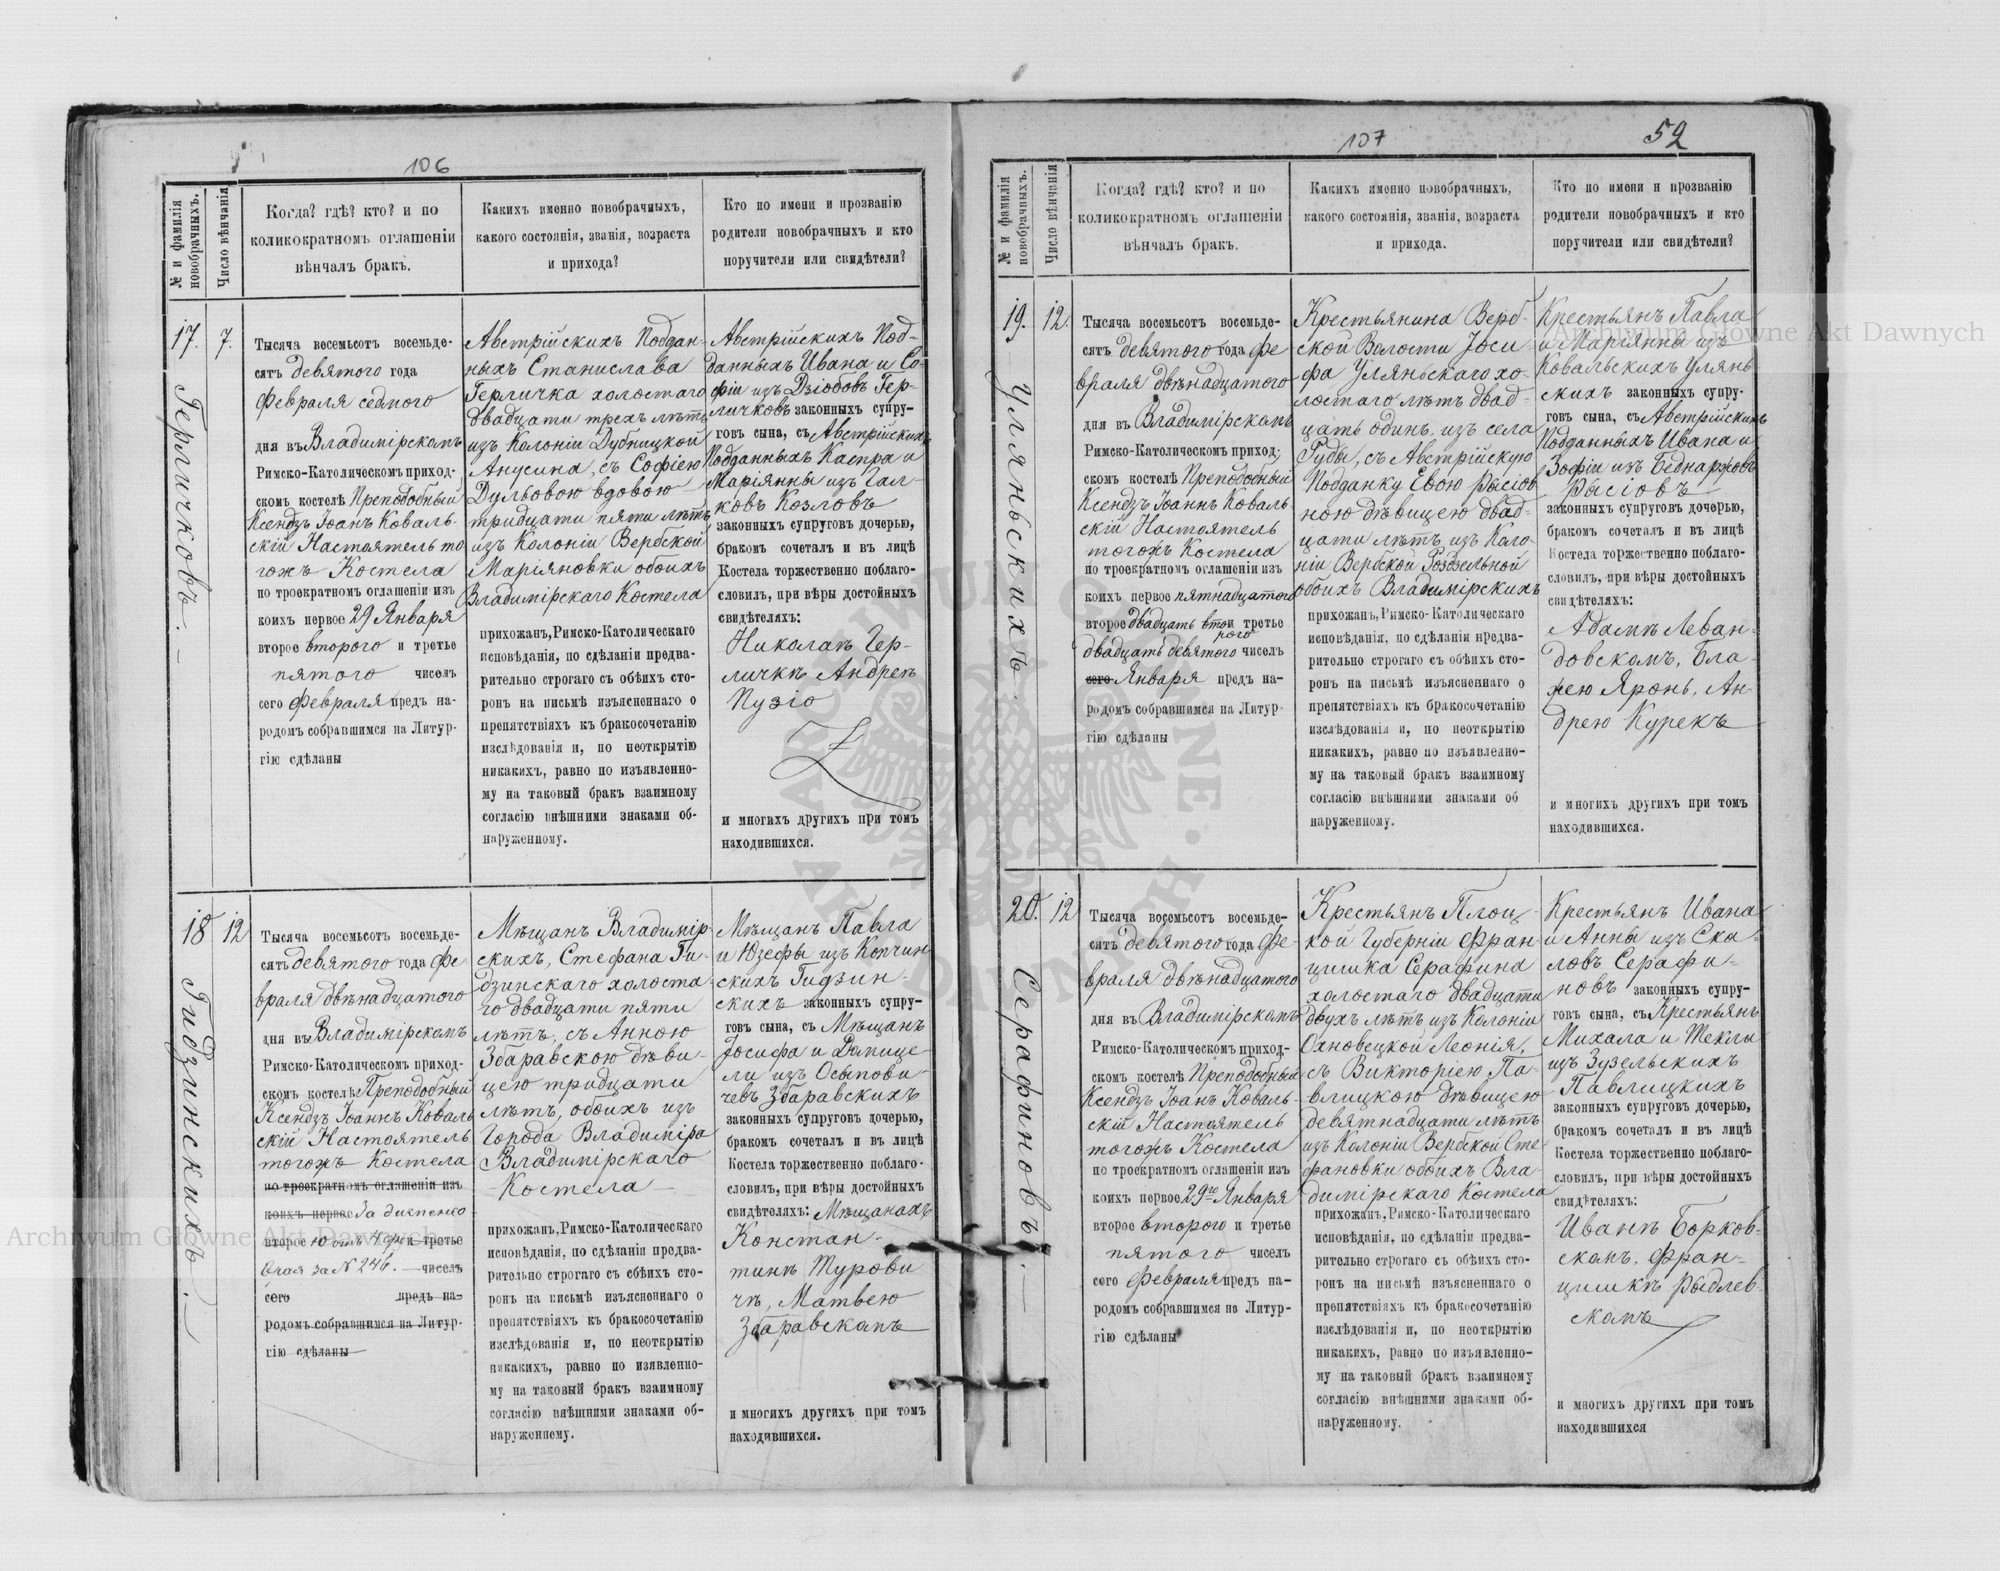 106
№ и фамилія новобрачныхъ.
Число вѣнчанія
Когда? гдѣ? кто? и по
коликократномъ оглашеніи
вѣнчалъ бракъ.
Какихъ именно новобрачныхъ,
какого состоянія, званія, возраста
и прихода?
Кто по имени и прозванію
родители новобрачныхъ и кто
поручители или свидѣтели?
17.
Герличковъ. –
7.
Тысяча весемьсотъ восемьде-
сятъ девятого года
Февраля седмого
дня въ Владимірскомъ
Римско-Католическомъ приход-
скомъ костелѣ Преподобный
Ксендзъ Іоанъ Коваль-
скій Настоятель то
гожъ Костела
по троекратномъ оглашеніи изъ
коихъ первое 29 Января
второе второго и третье
пятого чиселъ
сего Февраля предъ на-
родомъ собравшимся на Литур-
гію сдѣланы
Австрійскихъ Поддан-
ныхъ Станислава
Герличка холостаго
двадцати трехъ лѣтъ
изъ Колоніи Дубницкой
Анусина, съ Софіею
Дульбовою вдовою
тридцати пяти лѣтъ
изъ Колоніи Вербской
Маріяновки обоихъ
Владимірскаго Костела
прихожанъ, Римско-Католическаго
исповѣданія, по сдѣланіи предва-
рительно строгаго съ обѣихъ сто-
ронъ на письмѣ изъясненнаго о
препятствіяхъ къ бракосочетанію
изслѣдованія и, по неоткрытію
никакихъ, равно по изъявленно-
му на таковый бракъ взаимному
согласію внѣшними знаками об-
наруженному.
Австрійскихъ Под-
данныхъ Ивана и Со-
фіи изъ Дзіобовъ Гер-
личковъ законныхъ супру-
говъ сына, съ Австрійскихъ
Подданныхъ Каспра и
Маріянны изъ Гал-
ковъ Козловъ
законныхъ супруговъ дочерью,
бракомъ сочеталъ и въ лицѣ
Костела торжественно поблаго-
словилъ, при вѣры достойныхъ
свидѣтеляхъ:
Николаѣ Гер-
личкѣ Андреѣ
Пузіо
и многихъ другихъ при томъ
находившихся.
18
Гидзинскихъ. –
12
Тысяча восемьсотъ восемьде-
сятъ девятого года Фе
враля двѣнадцатого
дня въ Владимірскомъ
Римско-Католическомъ приход-
скомъ костелѣ Преподобный
Ксендзъ Іоаннъ Коваль
скій Настоятель
тогожъ Костела
по троекратномъ оглашеніи изъ
коихъ первое За диспенсо
второе ю отъ 4 фе и третье
враля за N 246. – чиселъ
сего предъ на-
родомъ собравшимся на Литур-
гію сдѣланы
Мѣщанъ Владимір-
скихъ, Стефана Ги-
дзинскаго холоста-
го двадцати пяти
лѣтъ, съ Анною
Збаравскою дѣви-
цею тридцати
лѣтъ, обоихъ изъ
Города Владиміра
Владимірскаго
Костела –
прихожанъ, Римско-Католическаго
исповѣданія, по сдѣланіи предва-
рительно строгаго съ обѣихъ сто-
ронъ на письмѣ изъясненнаго о
препятствіяхъ къ бракосочетанію
изслѣдованія и, по неоткрытію
никакихъ, равно по изявленно-
му на таковый бракъ взаимному
согласію внѣшними знаками об-
наруженному.
Мѣщанъ Павла
и Юзефы изъ Копчин-
скихъ Гидзин-
скихъ законныхъ супру-
говъ сына, съ Мѣщанъ
Іосифа и Данице-
ли изъ Осыпови-
чевъ Збаравскихъ
законныхъ супруговъ дочерью,
бракомъ сочеталъ и въ лицѣ
Костела торжественно поблаго-
словилъ, при вѣры достойныхъ
свидѣтеляхъ: Мѣщанахъ
Констан-
тинѣ Турови
чѣ, Матвею
Збаравскомъ
и многихъ другихъ при томъ
находившихся.
107
52
№ и фамилія новобрачныхъ.
Число вѣнчанія
Когда? гдѣ? кто? и по
коликократномъ оглашеніи
вѣнчалъ бракъ.
Какихъ именно новобрачныхъ,
какого состоянія, званія, возраста
и прихода.
Кто по имени и прозванію
родители новобрачныхъ и кто
поручители или свидѣтели?
19.
Уляньскихъ.
12.
Тысяча восемьсотъ восемьде-
сятъ девятого года Фе
враля двѣнадцатого
дня въ Владимірскомъ
Римско-Католическомъ приход-
скомъ костелѣ Преподобный
Ксендзъ Іоаннъ Коваль
скій Настоятель
тогожъ Костела
по троекратномъ оглашеніи изъ
коихъ первое пятнадцатого
второе двадцать вто и третье
рого
двадцать девятого чиселъ
сего Января предъ на-
родомъ собравшимся на Литур-
гію сдѣланы
Крестьянина Верб-
ской Волости Іоси-
фа Уляньскаго хо-
лостаго лѣтъ двад-
цать одинъ, изъ села
Руды, съ Австрійскую
Подданку Евою Рысіов
ною дѣвицею двад-
цати лѣтъ, изъ Коло-
ніи Вербской Роздзельной
обоихъ Владимірскихъ
прихожанъ, Римско-Католическаго
исповѣданія, по сдѣланіи предва-
рительно строгаго съ обѣихъ сто-
ронъ на письмѣ изъясненнаго о
препятствіяхъ къ бракосочетанію
изслѣдованія и, по неоткрытію
никакихъ, равно по изъявленно-
му на таковый бракъ взаимному
согласію внѣшними знаками об
наруженному.
Крестьянъ Павла
и Маріянны изъ
Ковальскихъ Улянь-
скихъ законныхъ супру-
говъ сына, съ Австрійскихъ
Подданныхъ Ивана и
Зофіи изъ Беднаржовъ
Рысіовъ
законныхъ супруговъ дочерью,
бракомъ сочеталъ и въ лицѣ
Костела торжественно поблаго-
словилъ, при вѣры достойныхъ
свидѣтеляхъ:
Адамѣ Леван-
довскомъ, Бла-
жею Яронь, Ан-
дрею Курекъ
и многихъ другихъ при томъ
находившихся.
20.
Серафиновъ. –
12
Тысяча восемьсотъ восемьде-
сятъ девятого года Фе-
враля двѣнадцатого
дня въ Владимірскомъ
Римско-Католическомъ приход-
скомъ костелѣ Преподобный
Ксендзъ Іоанъ Коваль-
скій Настоятель
тогожъ Костела
по троекратномъ оглашеніи изъ
коихъ первое 29го Января
второе второго и третье
пятого чиселъ
сего Февраля предъ на-
родомъ собравшимся на Литур-
гію сдѣланы
Крестьянъ Плоц-
кой Губерніи Фран-
цишка Серафина
холостаго двадцати
двухъ лѣтъ, изъ Колоніи
Охновецкой Леонія,
съ Викторіею Па-
влицкою дѣвицею
девятнадцати лѣтъ
изъ Колоніи Вербской Сте
фановки обоихъ Вла-
димірскаго Костела
прихожанъ, Римско-Католическаго
исповѣданія, по сдѣланіи предва-
рительно строгаго съ обѣихъ сто-
ронъ на письмѣ изъясненнаго о
препятствіяхъ къ бракосочетанію
изслѣдованія и, по неоткрытію
никакихъ, равно по изъявленно-
му на таковый бракъ взаимному
согласію внѣшними знаками об-
наруженному.
Крестьянъ Ивана
и Анны изъ Ска-
ловъ Серафи-
новъ законныхъ супру-
говъ сына, съ Крестьянъ
Михала и Теклы
изъ Зузельскихъ
Павлицкихъ
законныхъ супруговъ дочерью,
бракомъ сочеталъ и въ лицѣ
Костела торжественно поблаго-
словилъ, при вѣры достойныхъ
свидѣтеляхъ:
Иванѣ Борков-
скомъ, Фран-
цишкѣ Рыдлев-
скомъ
и многихъ другихъ при томъ
находившихся
Archiwum Główne Akt Dawnych
Archiwum Główne Akt Dawnych
ARCHIWUM GŁÓWNE AKT DAWNYCH